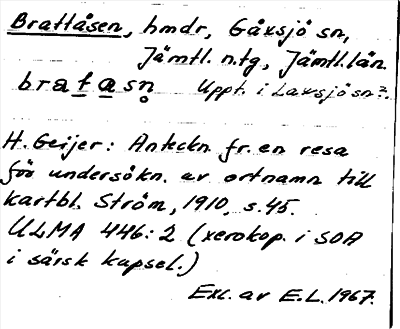 Brattåsen, hmdr, Gåxsjö sn,
Jämtl. n.tg, Jämtl. län.
bratasn̥ Uppt. i Laxsjö sn?.
H. Geijer: Anteckn fr. en resa
för undersökn. av ortnamn till
kartbl. Ström, 1910, s. 45.
ULMA 446:2 (xerokop. i SOA
i särsk kapsel.)
Exc. av E.L. 1967.